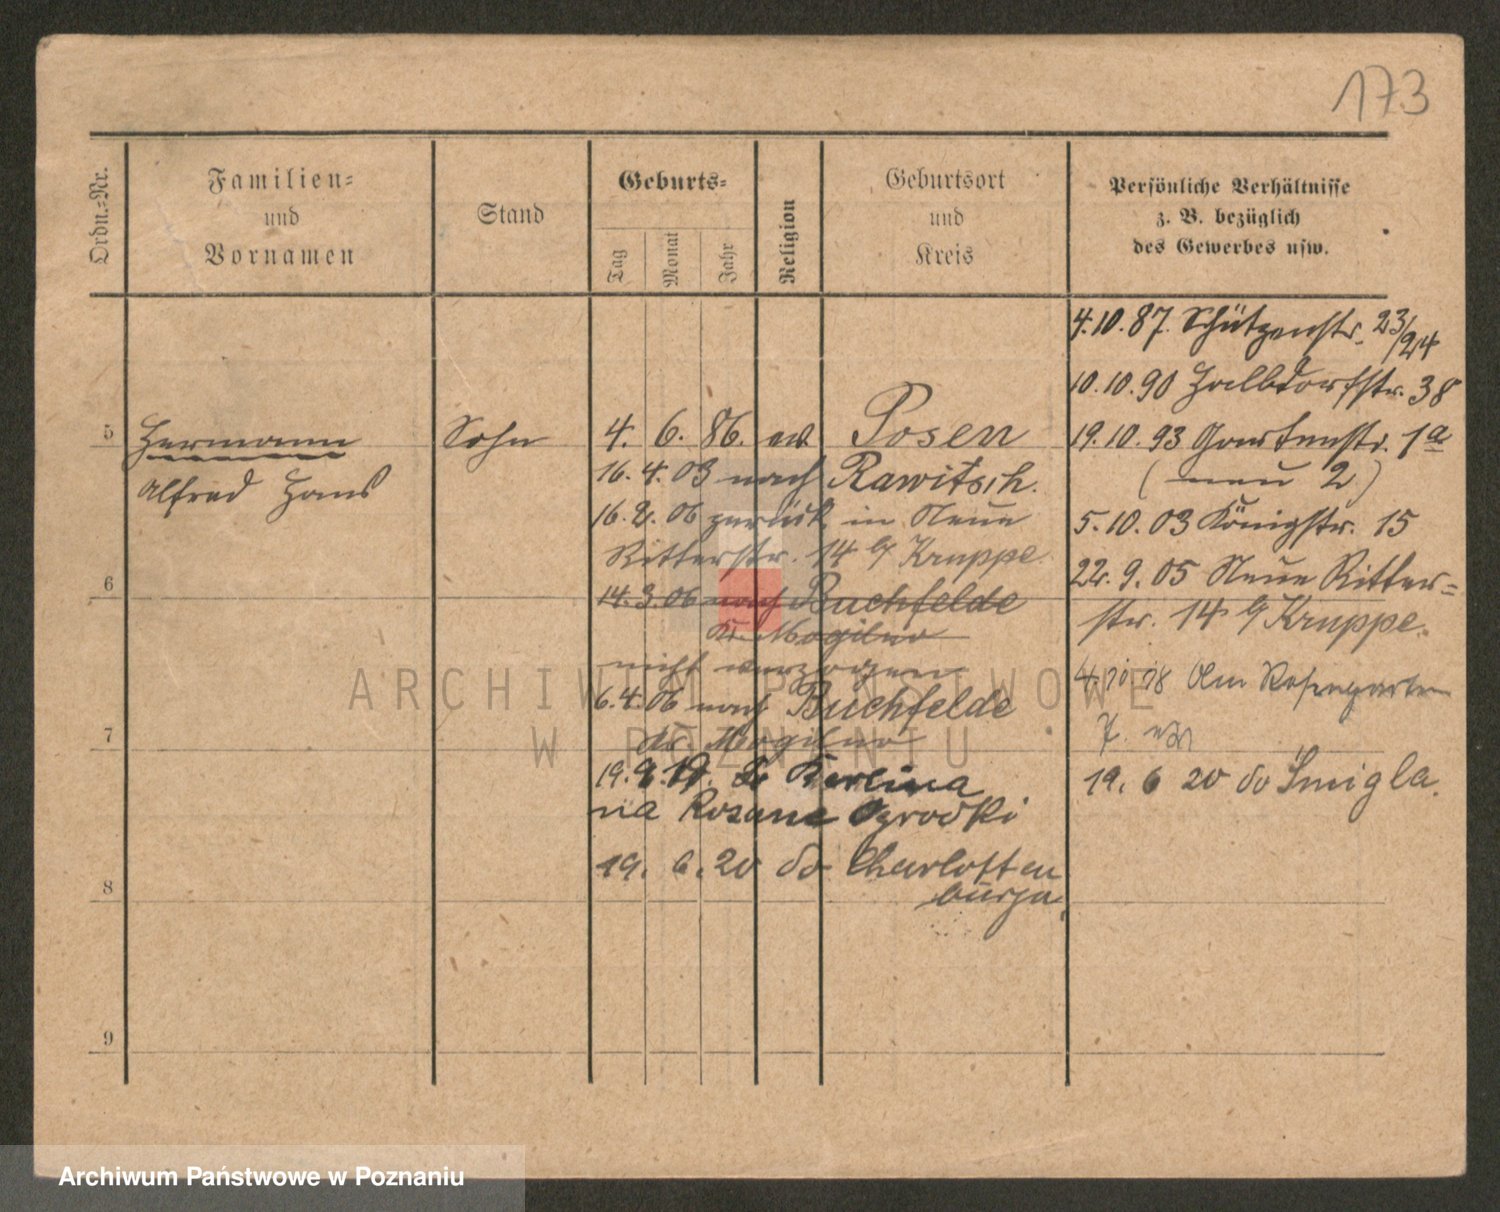 173
Ordn.=Nr.
Familien=
und
Vornamen
Stand
Geburts=
Tag
Monat
Jahr
Religion
Geburtsort
und
Kreis
Persönliche Verhältnisse
z. B. bezüglich
des Gewerbes usw.
4.10.87. Schützenstr. 23/24
10.10.90 Halbdorfstr. 38
5 Hermann Sohn 4. 6. 86. ev. Posen 19.10.93 Gartenstr. 1a
Alfred Hans 16.4.03 nach Rawitsch. (neu 2)
16.2.06 zurück in Neue 5.10.03 Königstr. 15
Ritterstr. 14 b/ Kruppe. 22.9.05 Neue Ritter=
6 14.3.06 nach Buchfelde str. 14 b/ Kruppe.
Kr. Mogilno
nicht verzogen Am Rosengarten
6.4.06 nach Buchfelde
7 Kr. Mogilno
do Berlina 19. 6 20 do Śmigla.
na Ogrodki
8 19. 6. 20 do Charlotten
burga.
9
ARCHIWUM PAŃSTWOWE
W POZNANIU
Archiwum Państwowe w Poznaniu